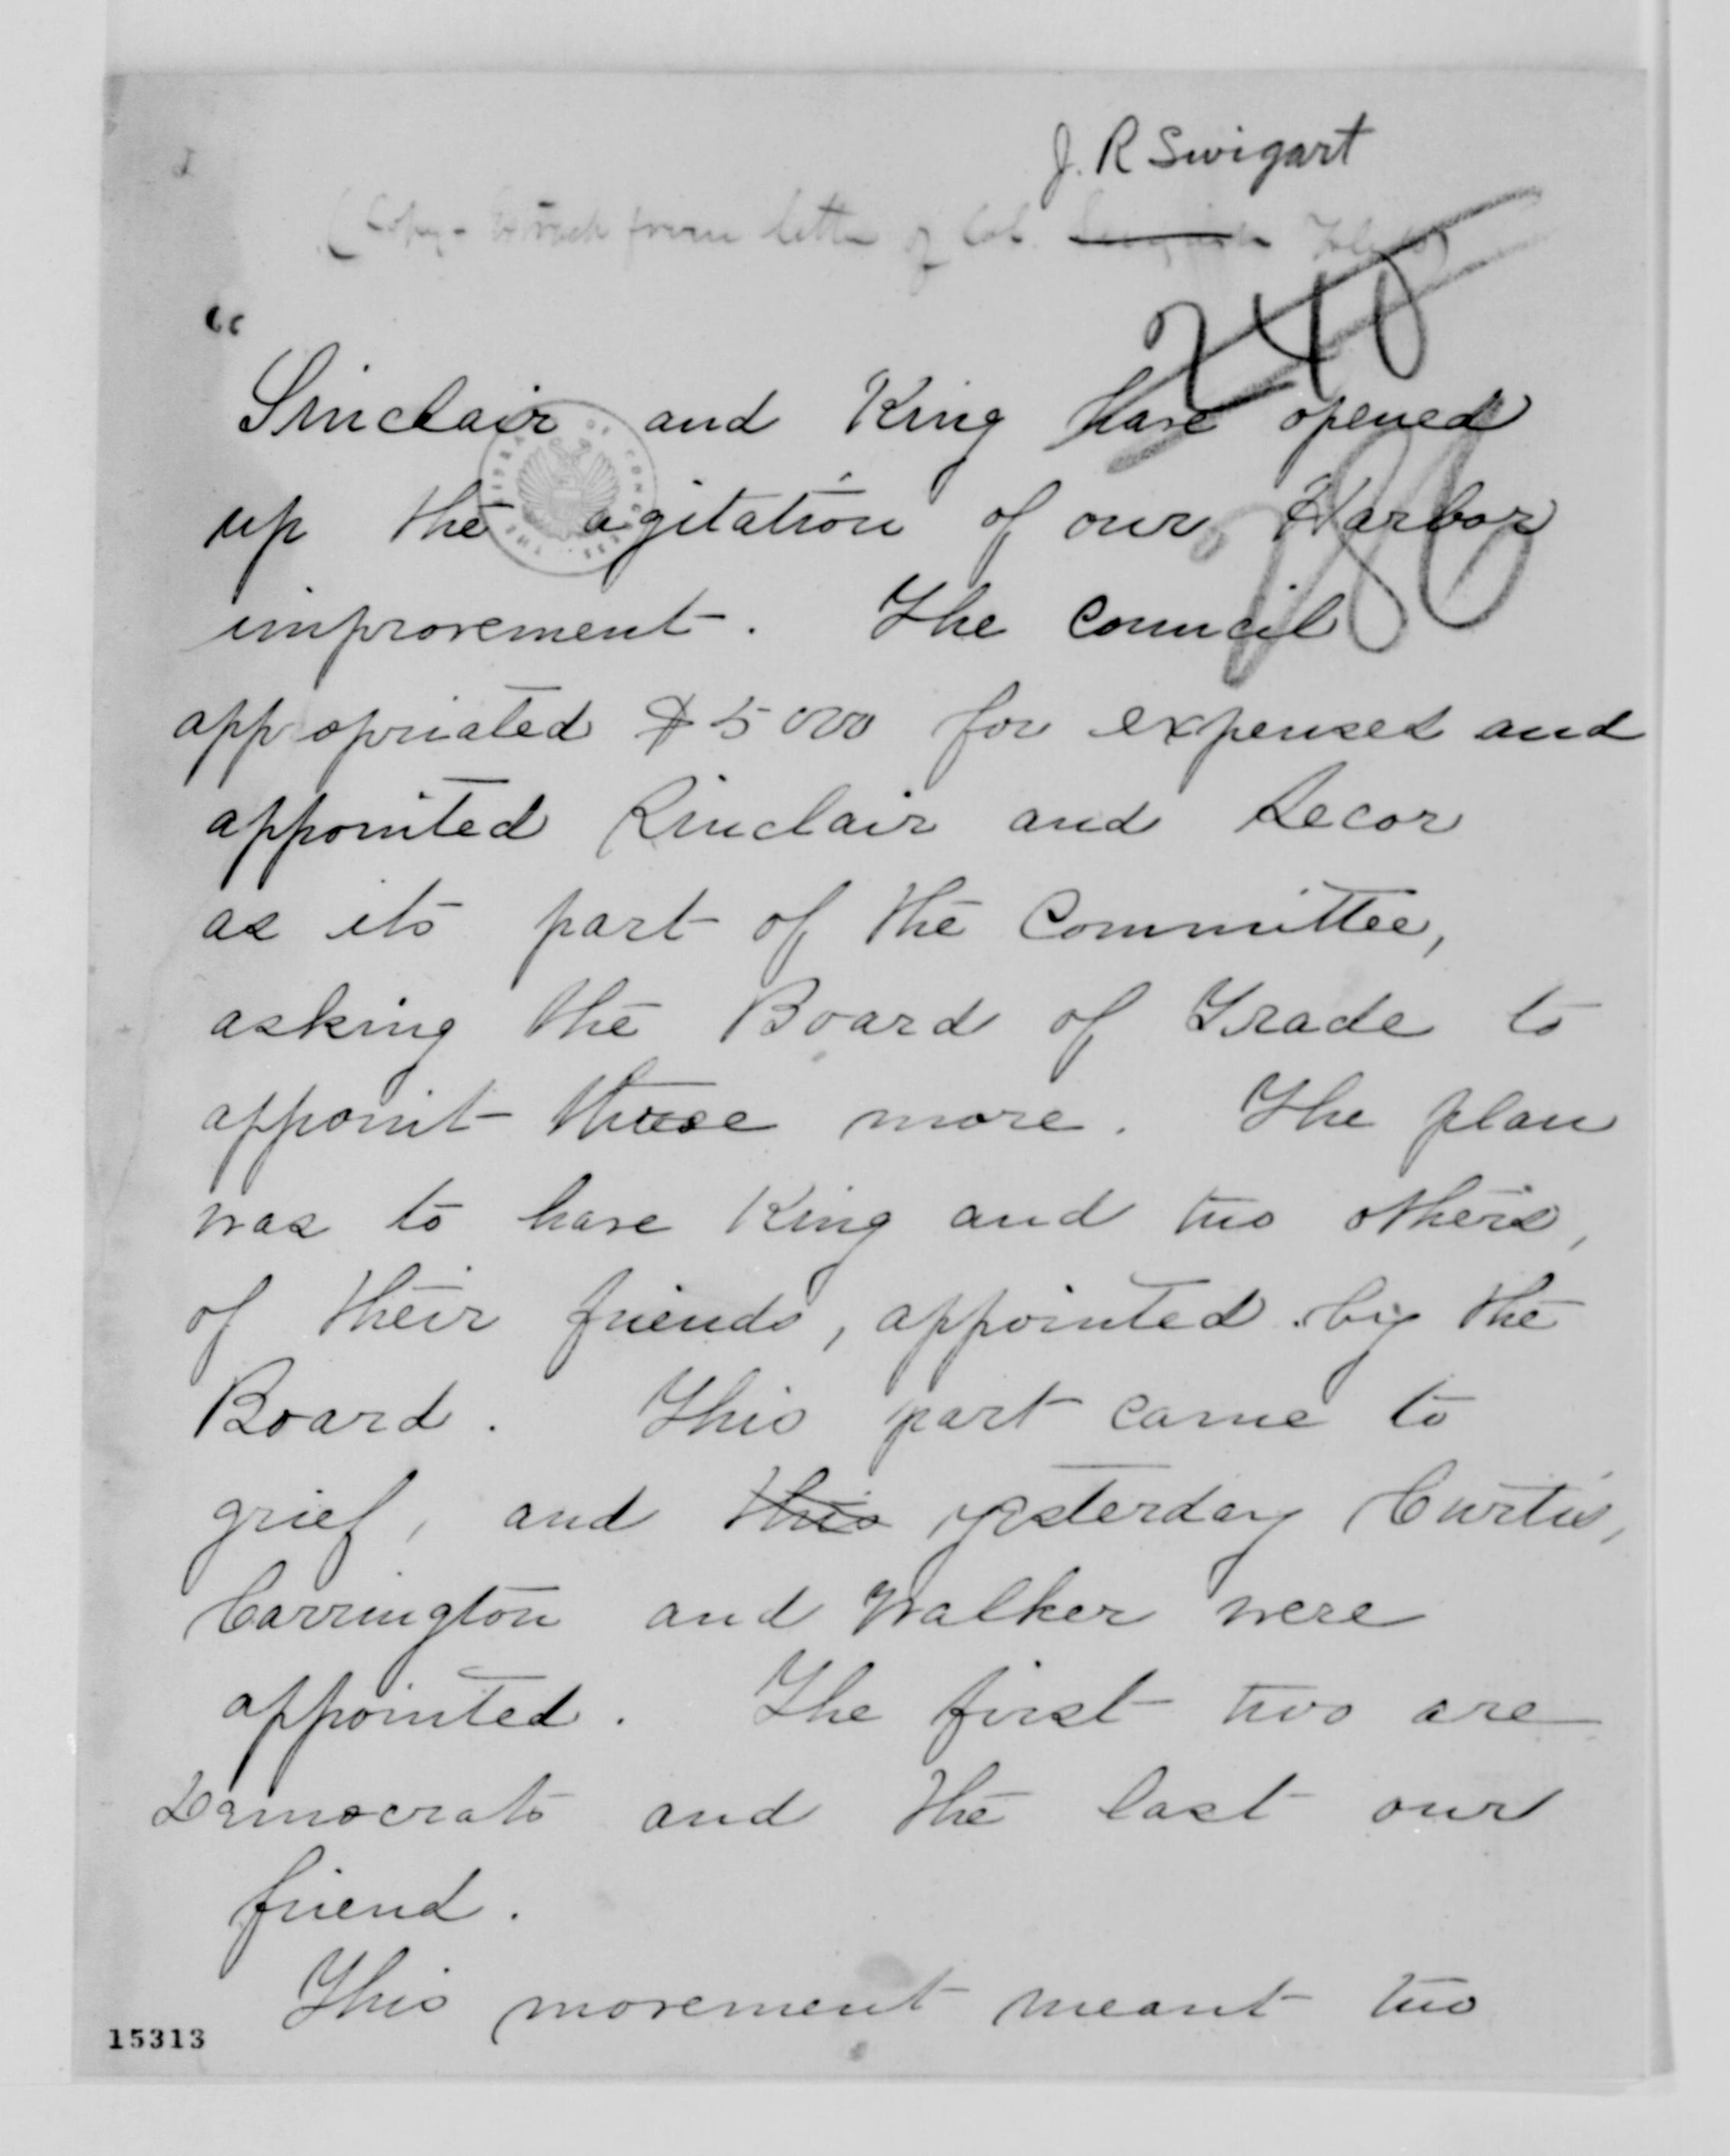 J. R Swigart
(Copy - Extract from letter of Col.
240
286
"
Sinclair and King have opened
up the agitation of our Harbor
improvement. The Council
appropriated $5000 for expenses and
appointed Sinclair and Secor
as its part of the Committee,
asking the Board of Trade to
appoint three more. The plan
was to have King and two others,
of their friends, appointed by the
Board. This part came to
grief, and this yesterday Curtis,
Carrington and Walker were
appointed. The first two are
Democrats and the last our
friend.
This movement meant two
15313